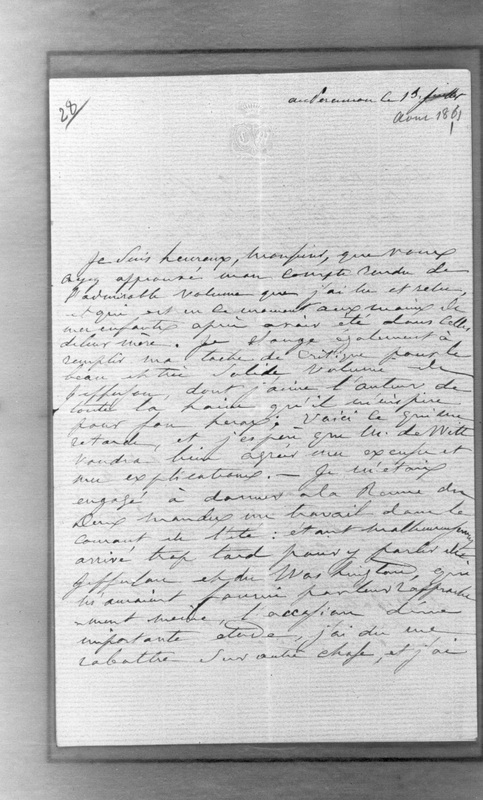 28/
le 13 juillet
Aout 1861
Je suis heureux, Monsieur, que vous
ayez approuvé mon compte rendu de
l'admirable volume que j'ai lu et relu,
et qui est en ce moment aux mains de
mes enfants après avoir été dans celles
de leur mère. Je songe également à
remplir ma tache de critique pour le
beau et très solide volume de
Jefferson, dont j'aime l'auteur de
toute la haine qu'il m'inspire
pour son heros; Voici ce qui me
retarde, et j'espère que M. de Witt
voudra bien agréer mes excuses et
mes explications. — Je m'étais
engagé à donner à la Revue des
Deux mondes un travail dans le
courant de l'été: étant malheureusement
arrivé trop tard pour y parler de
Jefferson et du Washington, qui
m'auraient fourni par leur rapproche
-ment même, l'occasion d'une
importante étude, j'ai du me
rabattre sur autre chose, et j'ai